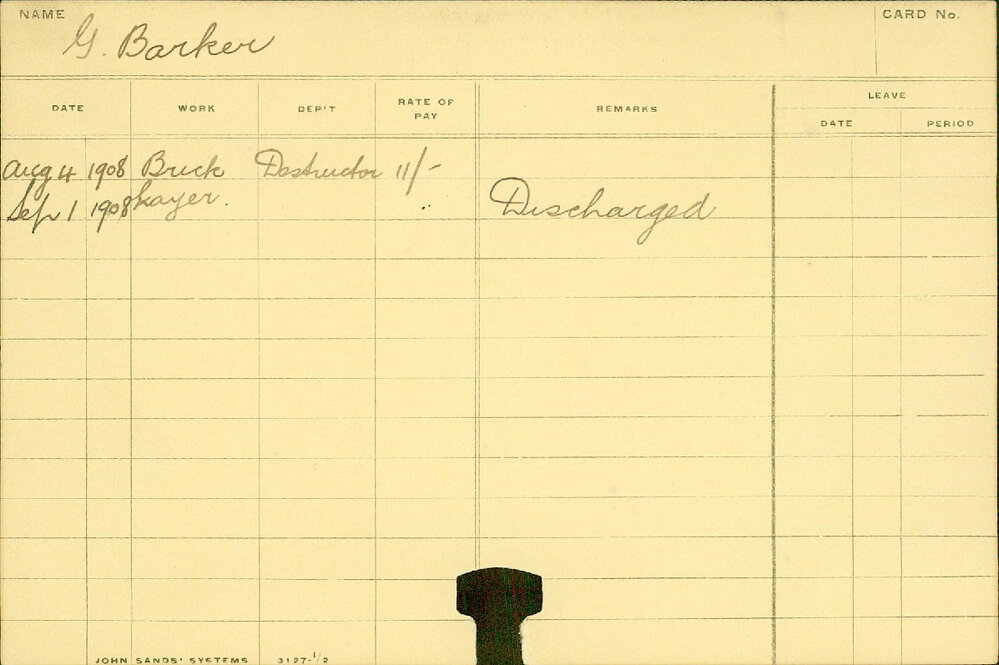 NAME CARD No.
G. Barker
DATE WORK DEP'T RATE OF PAY REMARKS LEAVE
DATE PERIOD
Aug 4 1908 Brick Destructor 11/-
Sep 1 1908 Layer. Discharged
JOHN SANDS' SYSTEMS 3127-1/2